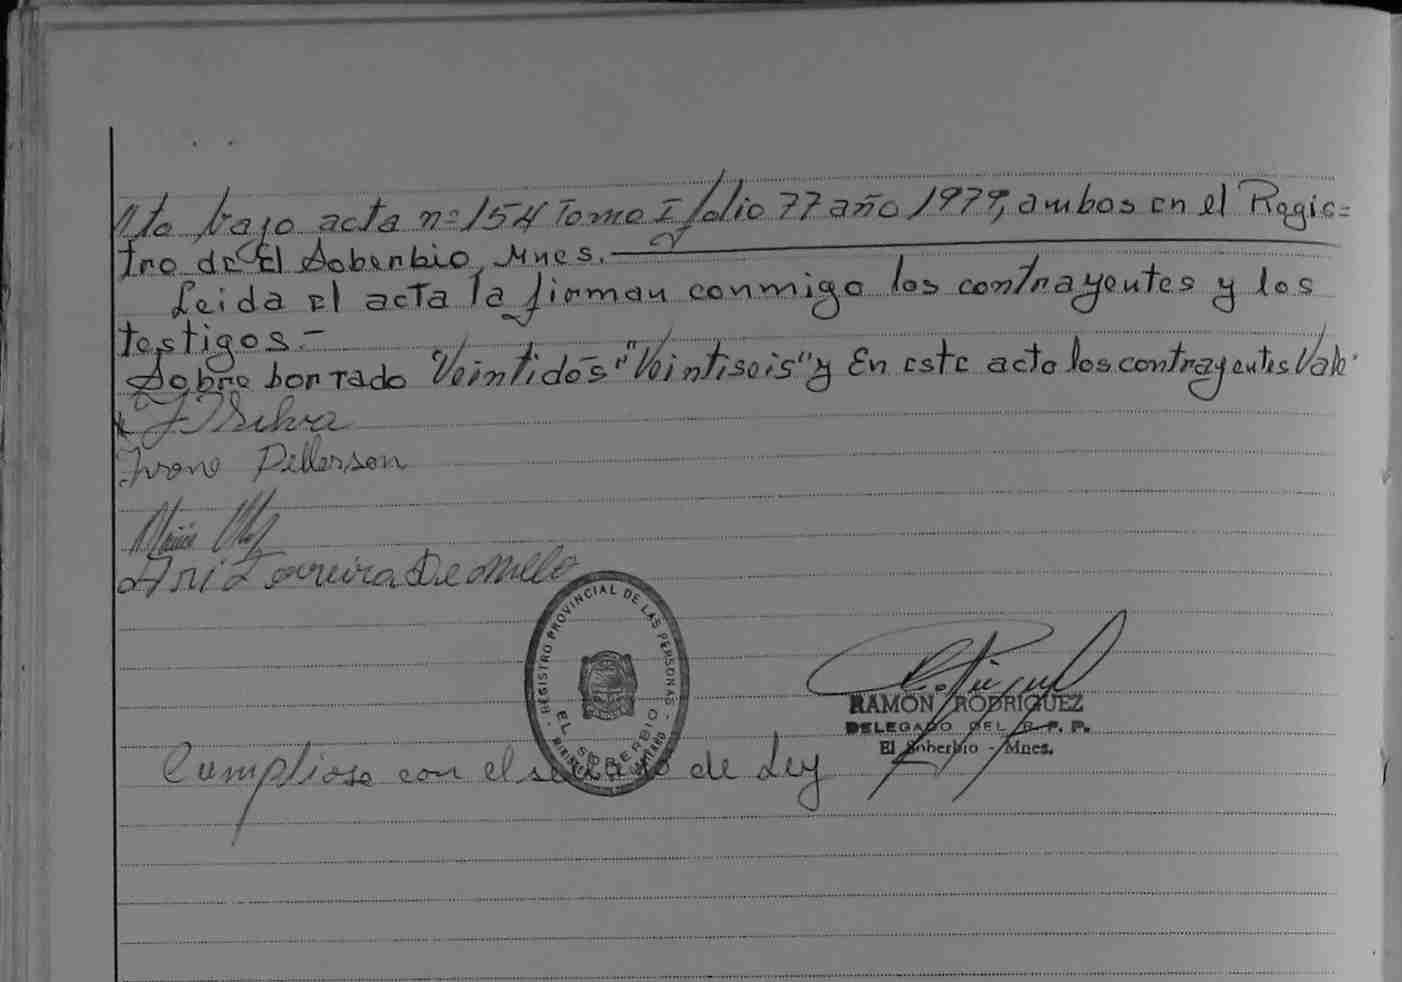 nto bajo acta nº 154 Tomo I folio 77 año 1979, ambos en el Regis=
tro de El Soberbio, Mnes.
Leida el acta la firman conmigo los contrayentes y los
testigos.-
Sobre borrado "Veintidós" "Veintiseis" y En este acto los contrayentes Vale.
Silva
Ivone Pellerson
Ari Ferreira De Mello
REGISTRO PROVINCIAL DE LAS PERSONAS
EL SOBERBIO
RAMON RODRIGUEZ
DELEGADO DEL R. P. P.
El Soberbio - Mnes.
Cumpliose con el de Ley